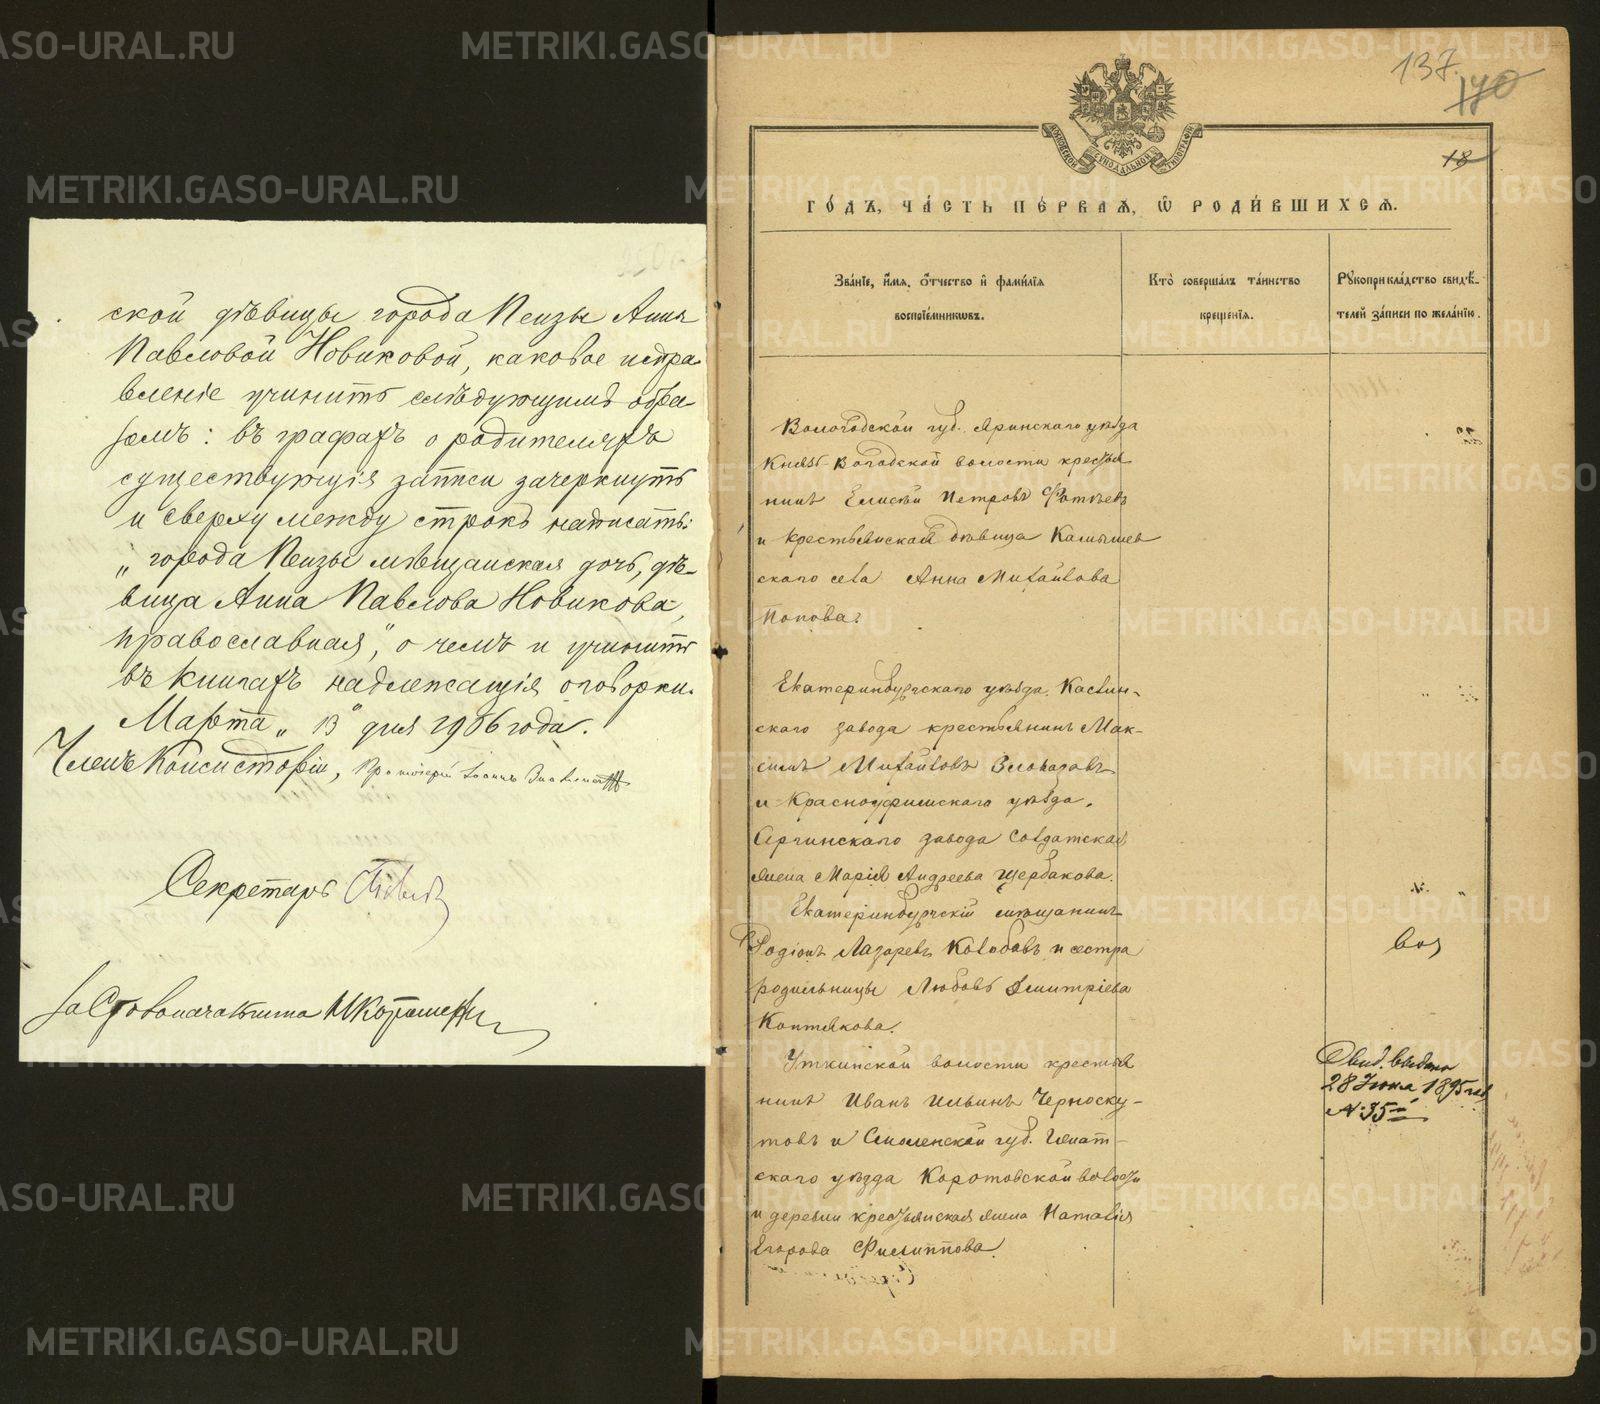 ской дѣвицы города Пензы Анны
Павловой Новиковой, каковое испра-
вленіе учинить слѣдующимъ обра-
зомъ: въ графахъ о родителяхъ
существующія записи зачеркнуть
и сверху между строкъ написать:
„города Пензы мѣщанская дочь, дѣ-
вица Анна Павлова Новикова,
православная", о чемъ и учинить
въ книгахъ надлежащія оговорки.
Марта „13" дня 1906 года.
Членъ Консисторіи, Протоіерей Іоаннъ
Секретарь
За Столоначальника
137
170
18
МОСКОВСКОЙ СѴНОДАЛЬНОЙ ТИПОГРАФІИ
ГО́ДЪ, ЧА́СТЬ ПЕ́РВАѦ, Ѡ҆ РОДИ́ВШИХСѦ.
Зва́нїе, и҆́мѧ, ѻ҆́тчество и҆ фами́лїѧ
воспрїе́мниковъ.
Кто̀ соверша́лъ та́инство
креще́нїѧ.
Рꙋкоприкла́дство свидѣ́-
телей за́писи по жела́нїю.
Вологодской губ. Яринскаго уѣзда
волости крестья
нинъ Елисей Петровъ Фотѣевъ
и крестьянская дѣвица Камышев
скаго села Анна Михайлова
Попова.
Екатеринбургскаго уѣзда, Каслин-
скаго завода крестьянинъ Мак-
симъ Михайловъ
и Красноуфимскаго уѣзда,
Сергинскаго завода солдатская
жена Марія Андреева Щербакова.
Екатеринбургскій мѣщанинъ
Родіонъ Лазаревъ Колобовъ и сестра
родильницы Любовь Димитріева
Коптякова.
Уткинской волости крестья
нинъ Иванъ Ильинъ Черноску-
товъ и Смоленской губ. Гжат-
скаго уѣзда Коротовской волости
и деревни крестьянская жена Наталія
Егорова Филиппова.
Свид. выдано
28 Іюня 1895 год
№ 35
METRIKI.GASO-URAL.RU